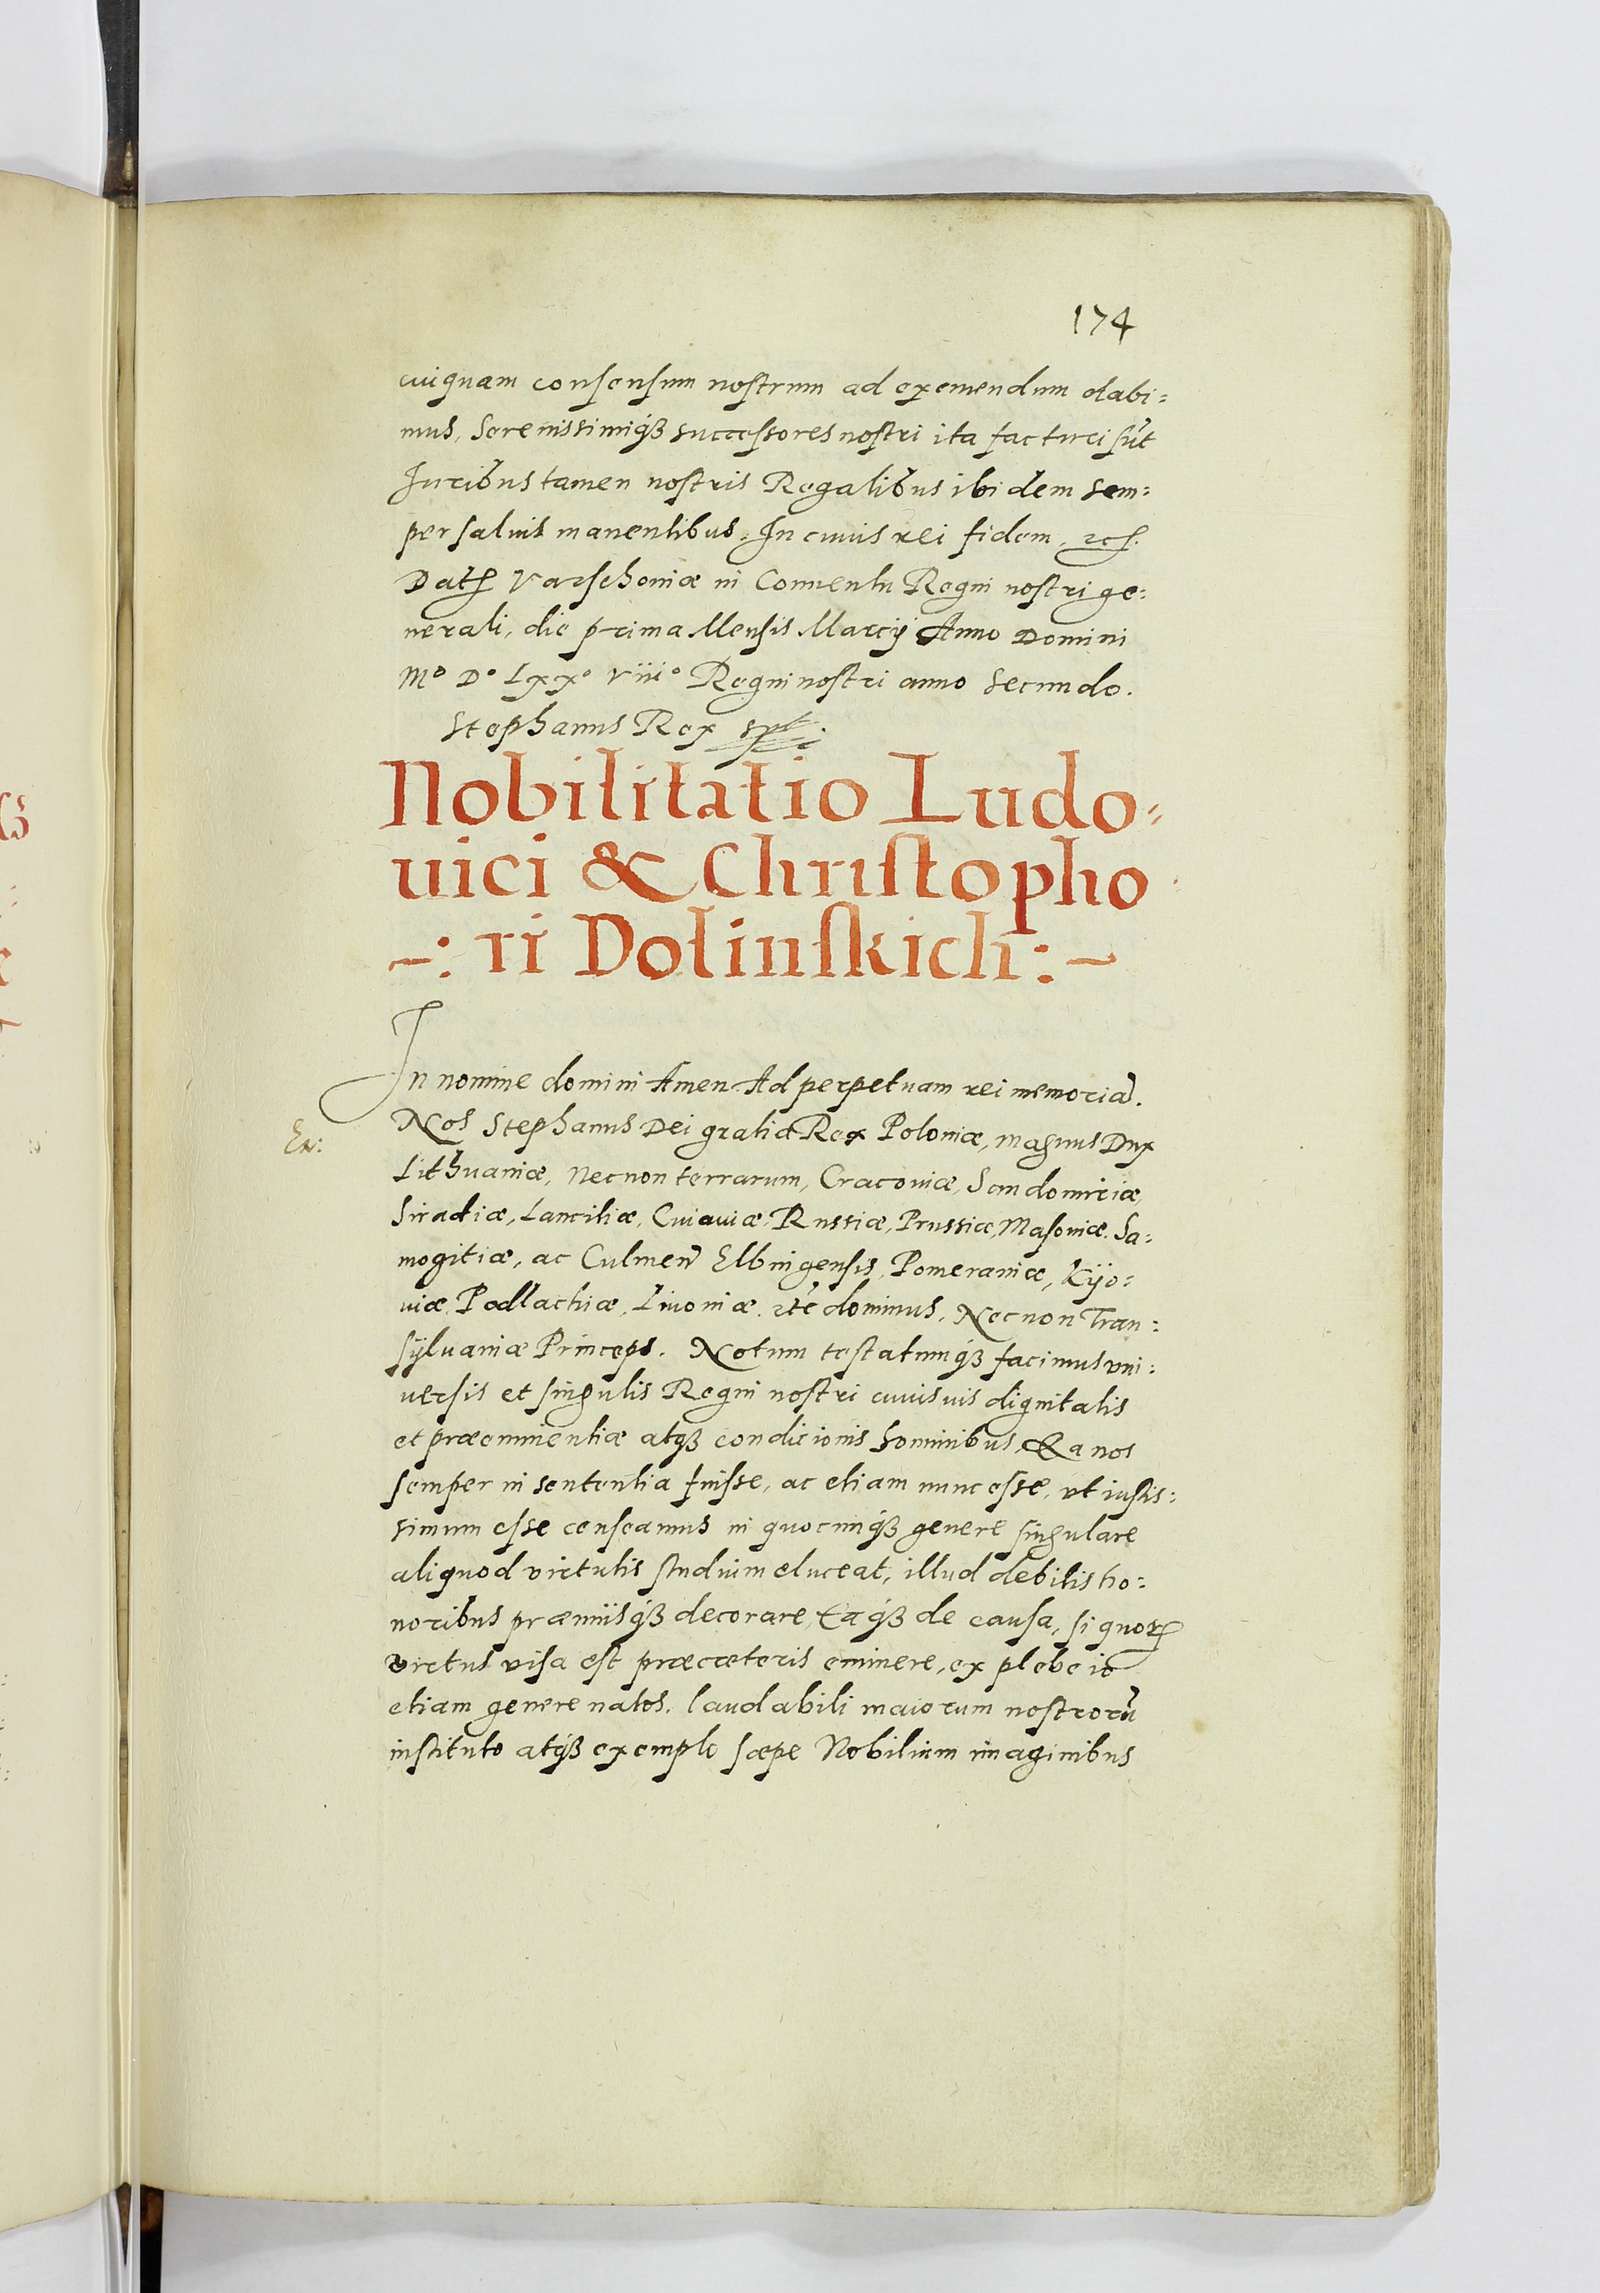 174
cuiquam consensum nostrum ad eximendum dabi:
mus, Serenissimiq́ꝫ successores nostri ita facturi sūt
Iuribus tamen nostris Regalibus ibidem sem:
per saluis manentibus. In cuius rei fidem, etc.
Dat Varschoviæ in Conuentu Regni nostri ge:
nerali, die prima Mensis Marcij Anno Domini
Mº Dº Lxxº viiiº Regni nostri anno secundo.
Stephanus Rex spt.
Nobilitatio Ludo-
uici & Christopho
-: ri Dolinskich :-
In nomine domini Amen Ad perpetuam rei memoriā.
Ex:
Nos Stephanus Dei gratia Rex Poloniæ, magnus Dux
Lithuaniæ, necnon terrarum, Cracouiæ, Sandomiriæ,
Siradiæ, Lanciciæ, Cuiauiæ, Russiæ, Prussiæ, Masouiæ, Sa:
mogitiæ, ac Culmeñ Elbingensis, Pomeraniæ, Kijo:
uiæ, Podlachiæ, Liuoniæ, etc̄ dominus, Necnon Tran:
sÿluaniæ Princeps. Notum testatumq́ꝫ facimus vni:
uersis et singulis Regni nostri cuiusuis dignitatis
et præeminentiæ atqꝫ condicionis hominibus, Ea nos
semper in sententia fuisse, ac etiam nunc esse, vt iustis:
simum esse censeamus in quocunq́ꝫ genere singulare
aliquod virtutis studium eluceat, illud debitis ho:
noribus præmiisq́ꝫ decorare, Eaq́ꝫ de causa, si quoꝝ
virtus visa est præcæteris eminere, ex plebeio
etiam genere natos, laudabili maiorum nostrorū
instituto atq́ꝫ exemplo sæpe Nobilium imaginibus